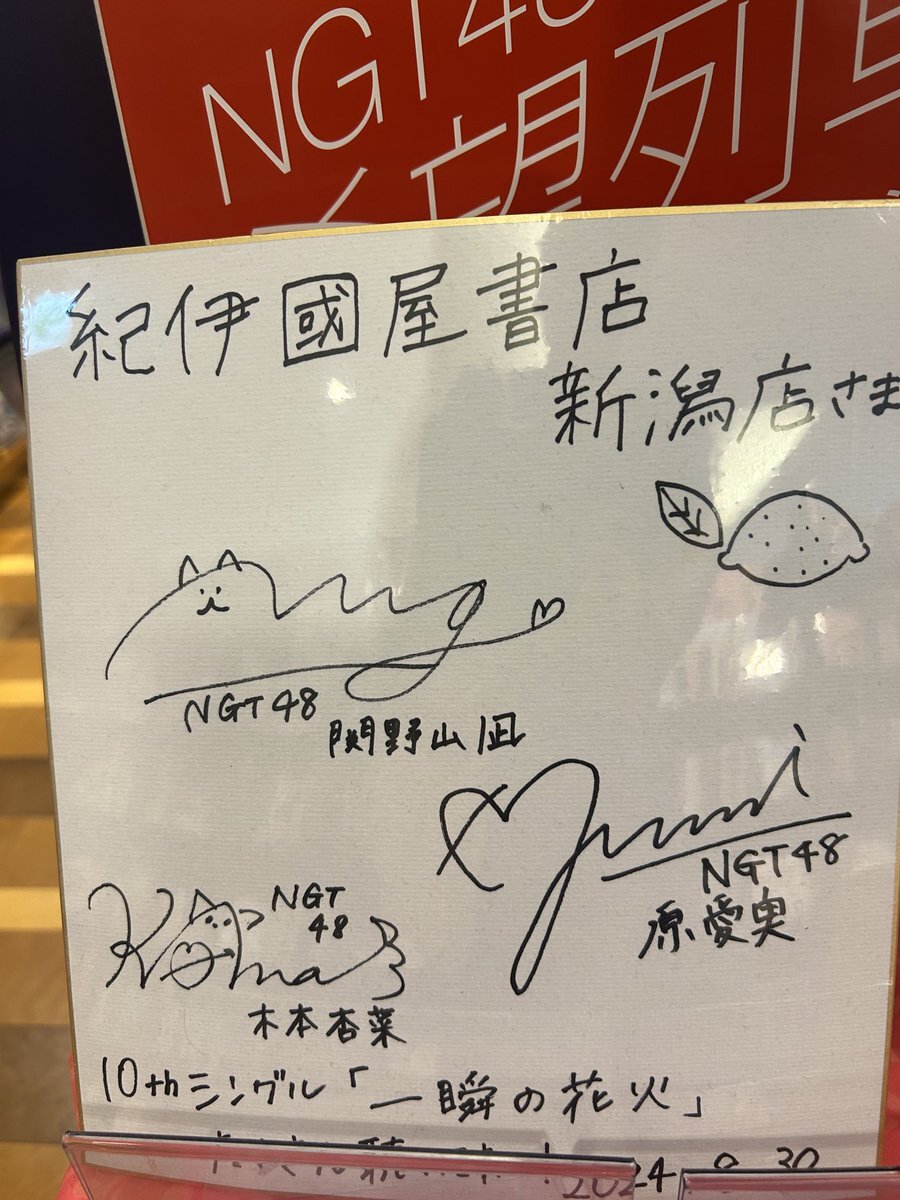 NGT48
望列車
紀伊國屋書店
新潟店さま
NGT48
関野山凪
NGT48
原愛実
Koma
NGT
48
木本杏菜
10thシングル「一瞬の花火」
2024